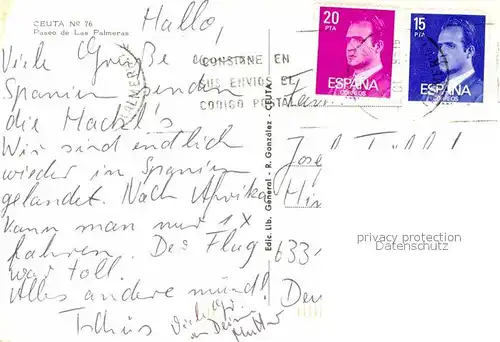 CEUTA Nº 76
Paseo de Las Palmeras
Hallo,
Viele Grüße aus
Spanien senden
die Mackel's
Wir sind endlich
wieder in Spanien
gelandet. Nach Afrika
kann man nur 1x
fahren. Der Flug
war toll.
Alles andere münd!
Tschüs
Viele Gr.
an Deine
Mutter
CONSIGNE EN
SUS ENVIOS EL
CODIGO POSTAL
PALMERA
Edic. Lib. General - R. González - CEUTA
20
PTA
ESPAÑA
CORREOS
15
PTA
ESPAÑA
CORREOS
Fam.
Josef
633
privacy protection
Datenschutz